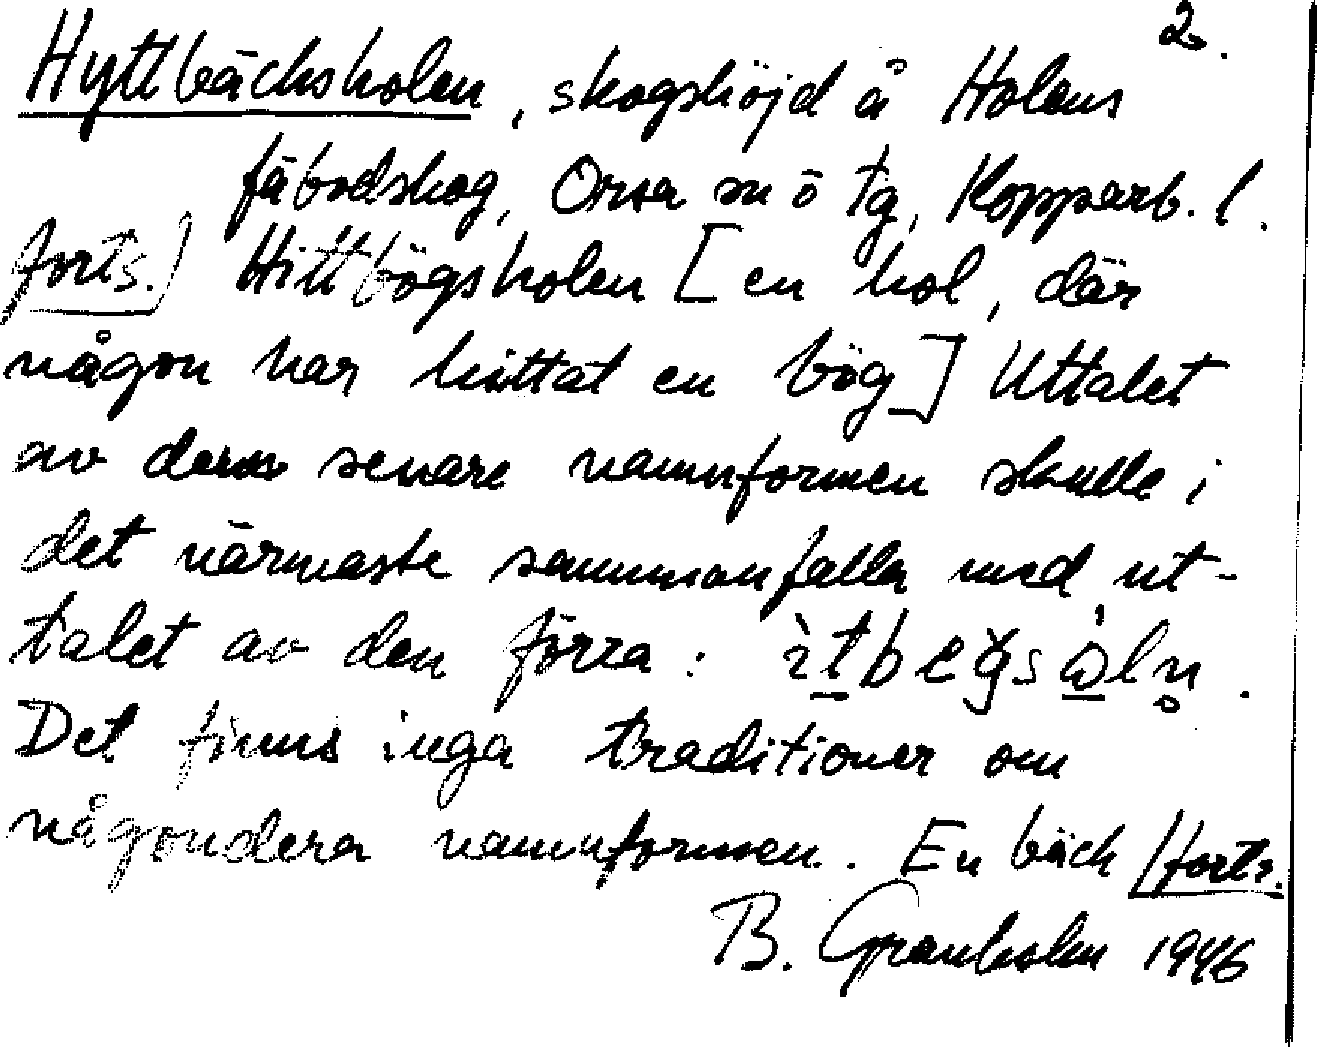 2.
Hyttbäcksholen, skogshöjd å Holens
fäbodskog, Orsa sn ö tg, Kopparb. l.
forts.) Hittbögsholen [en hol, där
någon har hittat en bög] Uttalet
av den senare namnformen skulle i
det närmaste sammanfalla med ut-
talet av den förra :
Det finns inga traditioner om
någondera namnformen. En bäck /forts.
B. Granholm 1946